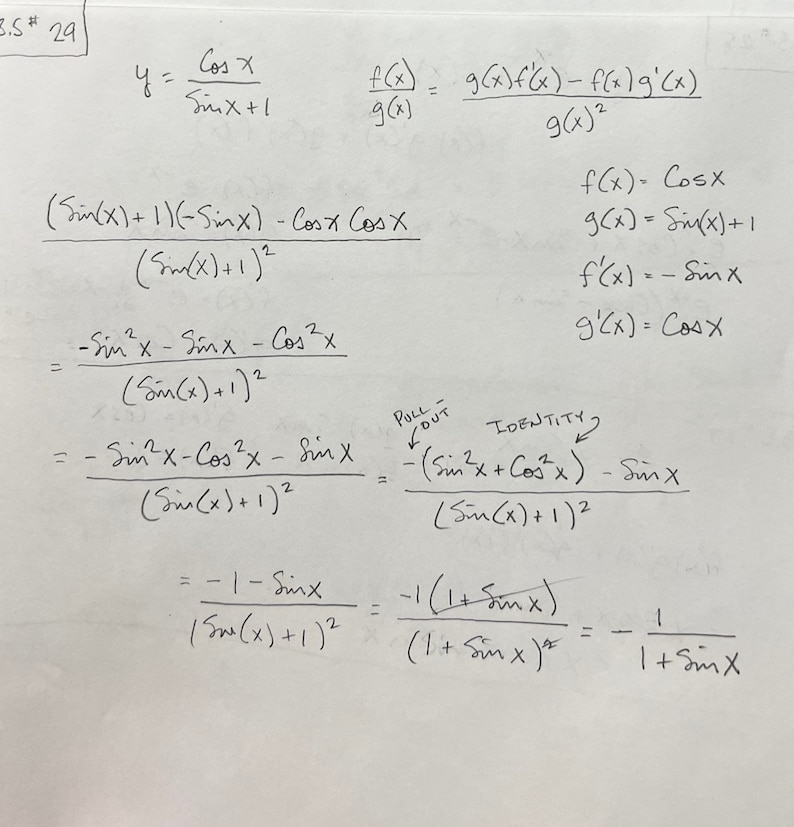 3.5 # 29
y = Cos x / (Sin x + 1)
f(x) / g(x) = (g(x) f'(x) - f(x) g'(x)) / g(x)²
f(x) = Cos x
(Sin(x) + 1)(-Sin x) - Cos x Cos x / (Sin(x) + 1)²
g(x) = Sin(x) + 1
f'(x) = - Sin x
g'(x) = Cos x
= (-Sin²x - Sin x - Cos²x) / (Sin(x) + 1)²
PULL - OUT
IDENTITY
= (- Sin²x - Cos²x - Sin x) / (Sin(x) + 1)² = (-(Sin²x + Cos²x) - Sin x) / (Sin(x) + 1)²
= (-1 - Sin x) / (Sin(x) + 1)² = -1(1 + Sin x) / (1 + Sin x)² = - 1 / (1 + Sin x)